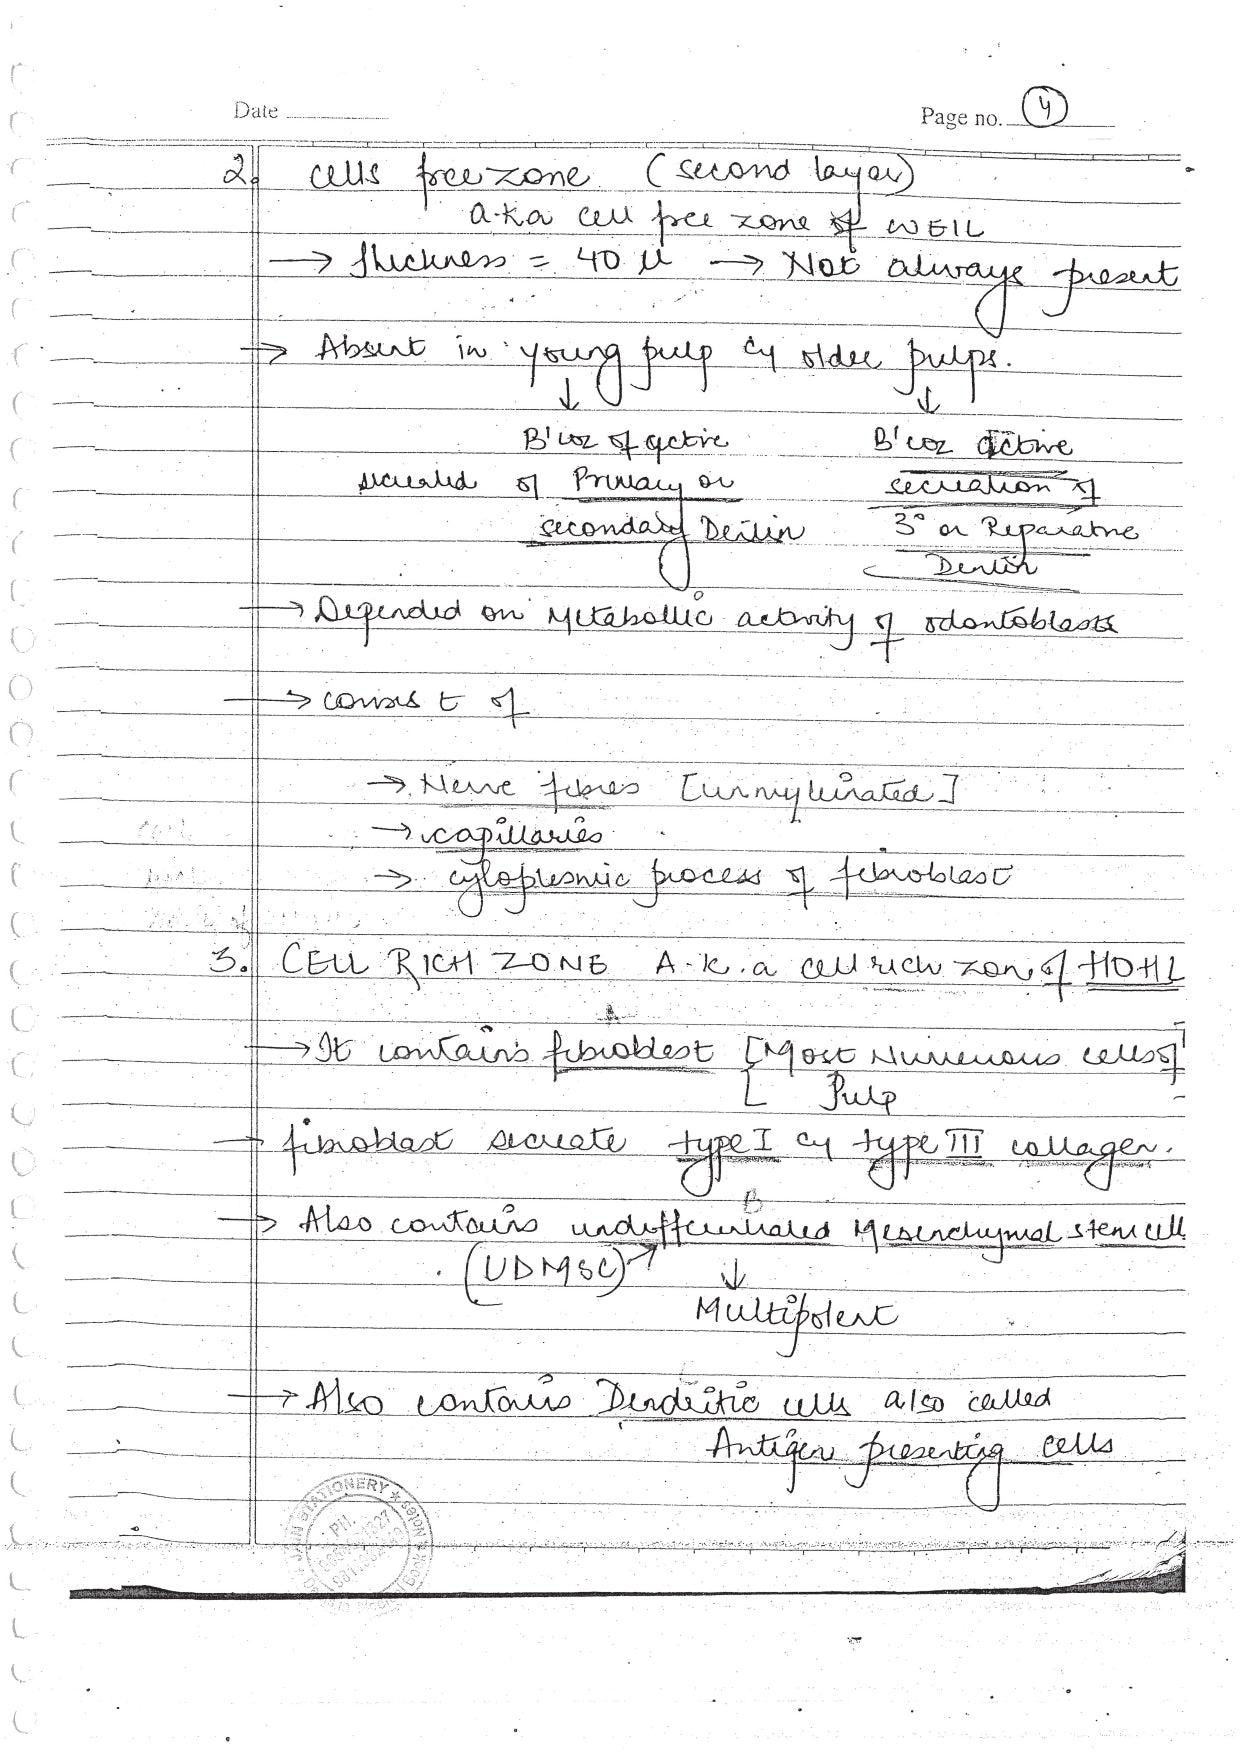 Date
Page no. 4
2. cells free zone (second layer)
a.k.a cell free zone of WEIL
→ thickness = 40 µ → Not always present
→ Absent in young pulp & older pulps.
↓ ↓
B'coz of active B'coz active
secreated of Primary or secreation of
secondary Dentin 3° or Reparative
Dentin
→ Depended on Metabollic activity of odontoblasts
→ consist of
→ Nerve fibres [unmyleinated]
→ capillaries
→ cytoplasmic process of fibroblast
3. CELL RICH ZONE A.K.a cell rich zone of HOHL
A
→ It contains fibroblast [Most Numerous cells of
Pulp]
→ fibroblast secreate type I & type III collagen.
B
→ Also contains undifferentiated Mesenchymal stem cell
(UDMSC) ↓
Multipotent
→ Also contains Dendritic cells also called
Antigen presenting cells
STATIONERY
PH.